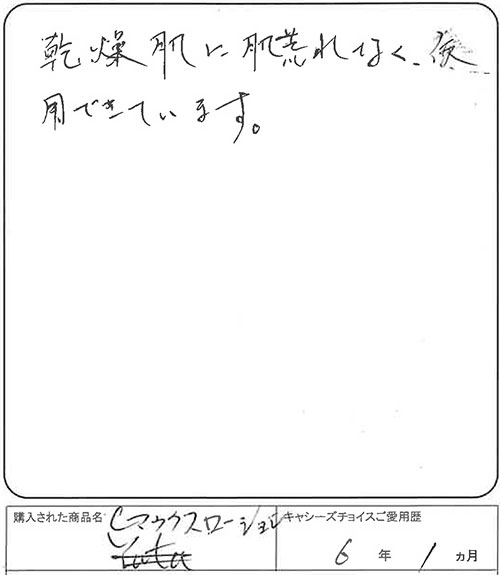 乾燥肌に肌荒れなく、使
用できています。
購入された商品名 Cマックスローション
キャシーズチョイスご愛用歴
6年1ヵ月